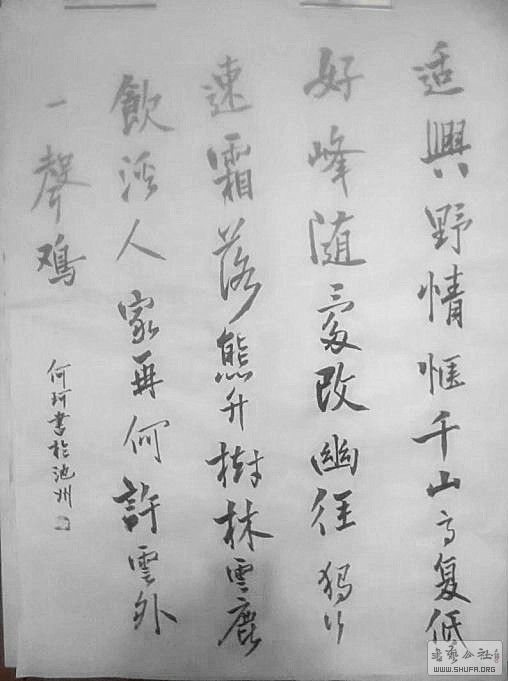 适興野情惬千山高复低
好峰随處改幽径獨行
速霜落熊升樹林雲鹿
飲溪人家再何許雲外
一聲鸡
何珂書於池州
書藝公社
WWW.SHUFA.ORG